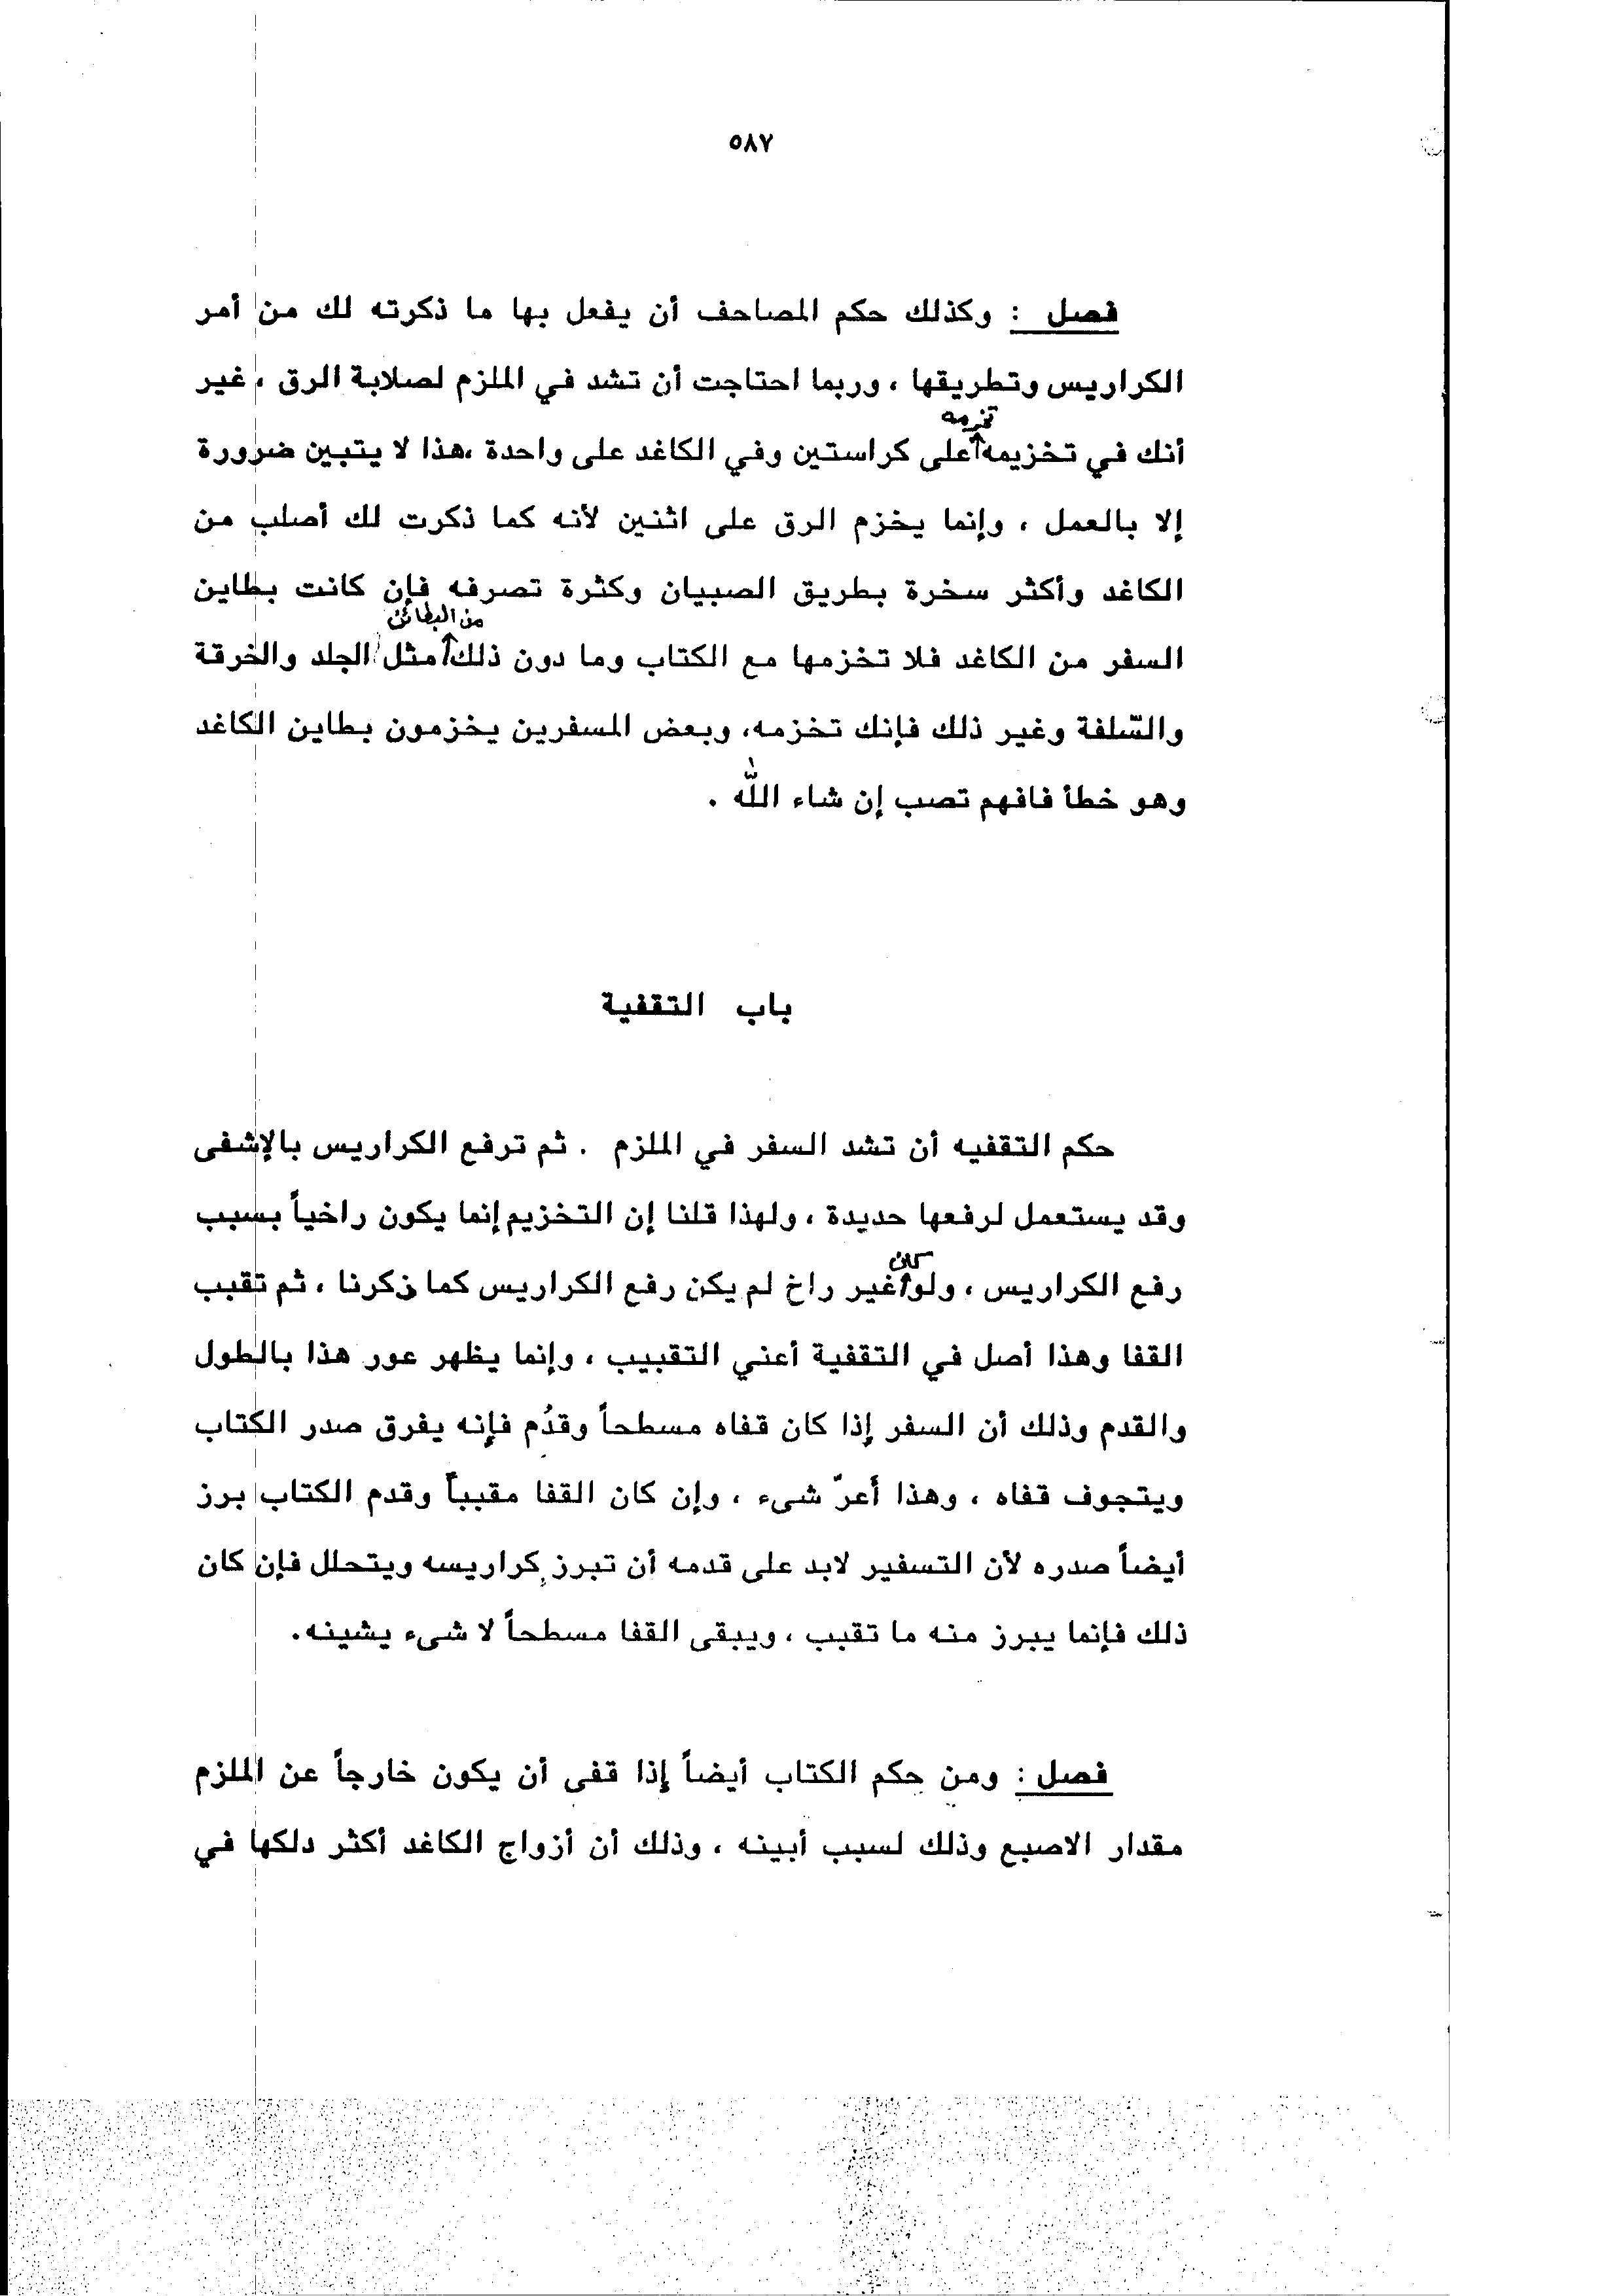 ٥٨٧
فصل : وكذلك حكم المصاحف أن يفعل بها ما ذكرته لك من أمر
الكراريس وتطريقها ، وربما احتاجت أن تشد في الملزم لصلابة الرق ، غير
تخزمه
أنك في تخزيمه على كراستين وفي الكاغد على واحدة ،هذا لا يتبين ضرورة
إلا بالعمل ، وإنما يخزم الرق على اثنين لأنه كما ذكرت لك أصلب من
الكاغد وأكثر سخرة بطريق الصبيان وكثرة تصرفه فإن كانت بطاين
من البطائن
السفر من الكاغد فلا تخزمها مع الكتاب وما دون ذلك مثل الجلد والخرقة
والسّلفة وغير ذلك فإنك تخزمه، وبعض المسفرين يخزمون بطاين الكاغد
وهو خطأ فافهم تصب إن شاء الله .
باب التقفية
حكم التقفيه أن تشد السفر في الملزم . ثم ترفع الكراريس بالإشفى
وقد يستعمل لرفعها حديدة ، ولهذا قلنا إن التخزيم إنما يكون راخياً بسبب
كان
رفع الكراريس ، ولو غير راخ لم يكن رفع الكراريس كما ذكرنا ، ثم تقبب
القفا وهذا أصل في التقفية أعني التقبيب ، وإنما يظهر عور هذا بالطول
والقدم وذلك أن السفر إذا كان قفاه مسطحاً وقدُم فإنه يفرق صدر الكتاب
ويتجوف قفاه ، وهذا أعرّ شىء ، وإن كان القفا مقبباً وقدم الكتاب برز
أيضاً صدره لأن التسفير لابد على قدمه أن تبرز كراريسه ويتحلل فإن كان
ذلك فإنما يبرز منه ما تقبب ، ويبقى القفا مسطحاً لا شىء يشينه.
فصل : ومن حكم الكتاب أيضاً إذا قفى أن يكون خارجاً عن الملزم
مقدار الاصبع وذلك لسبب أبينه ، وذلك أن أزواج الكاغد أكثر دلكها في